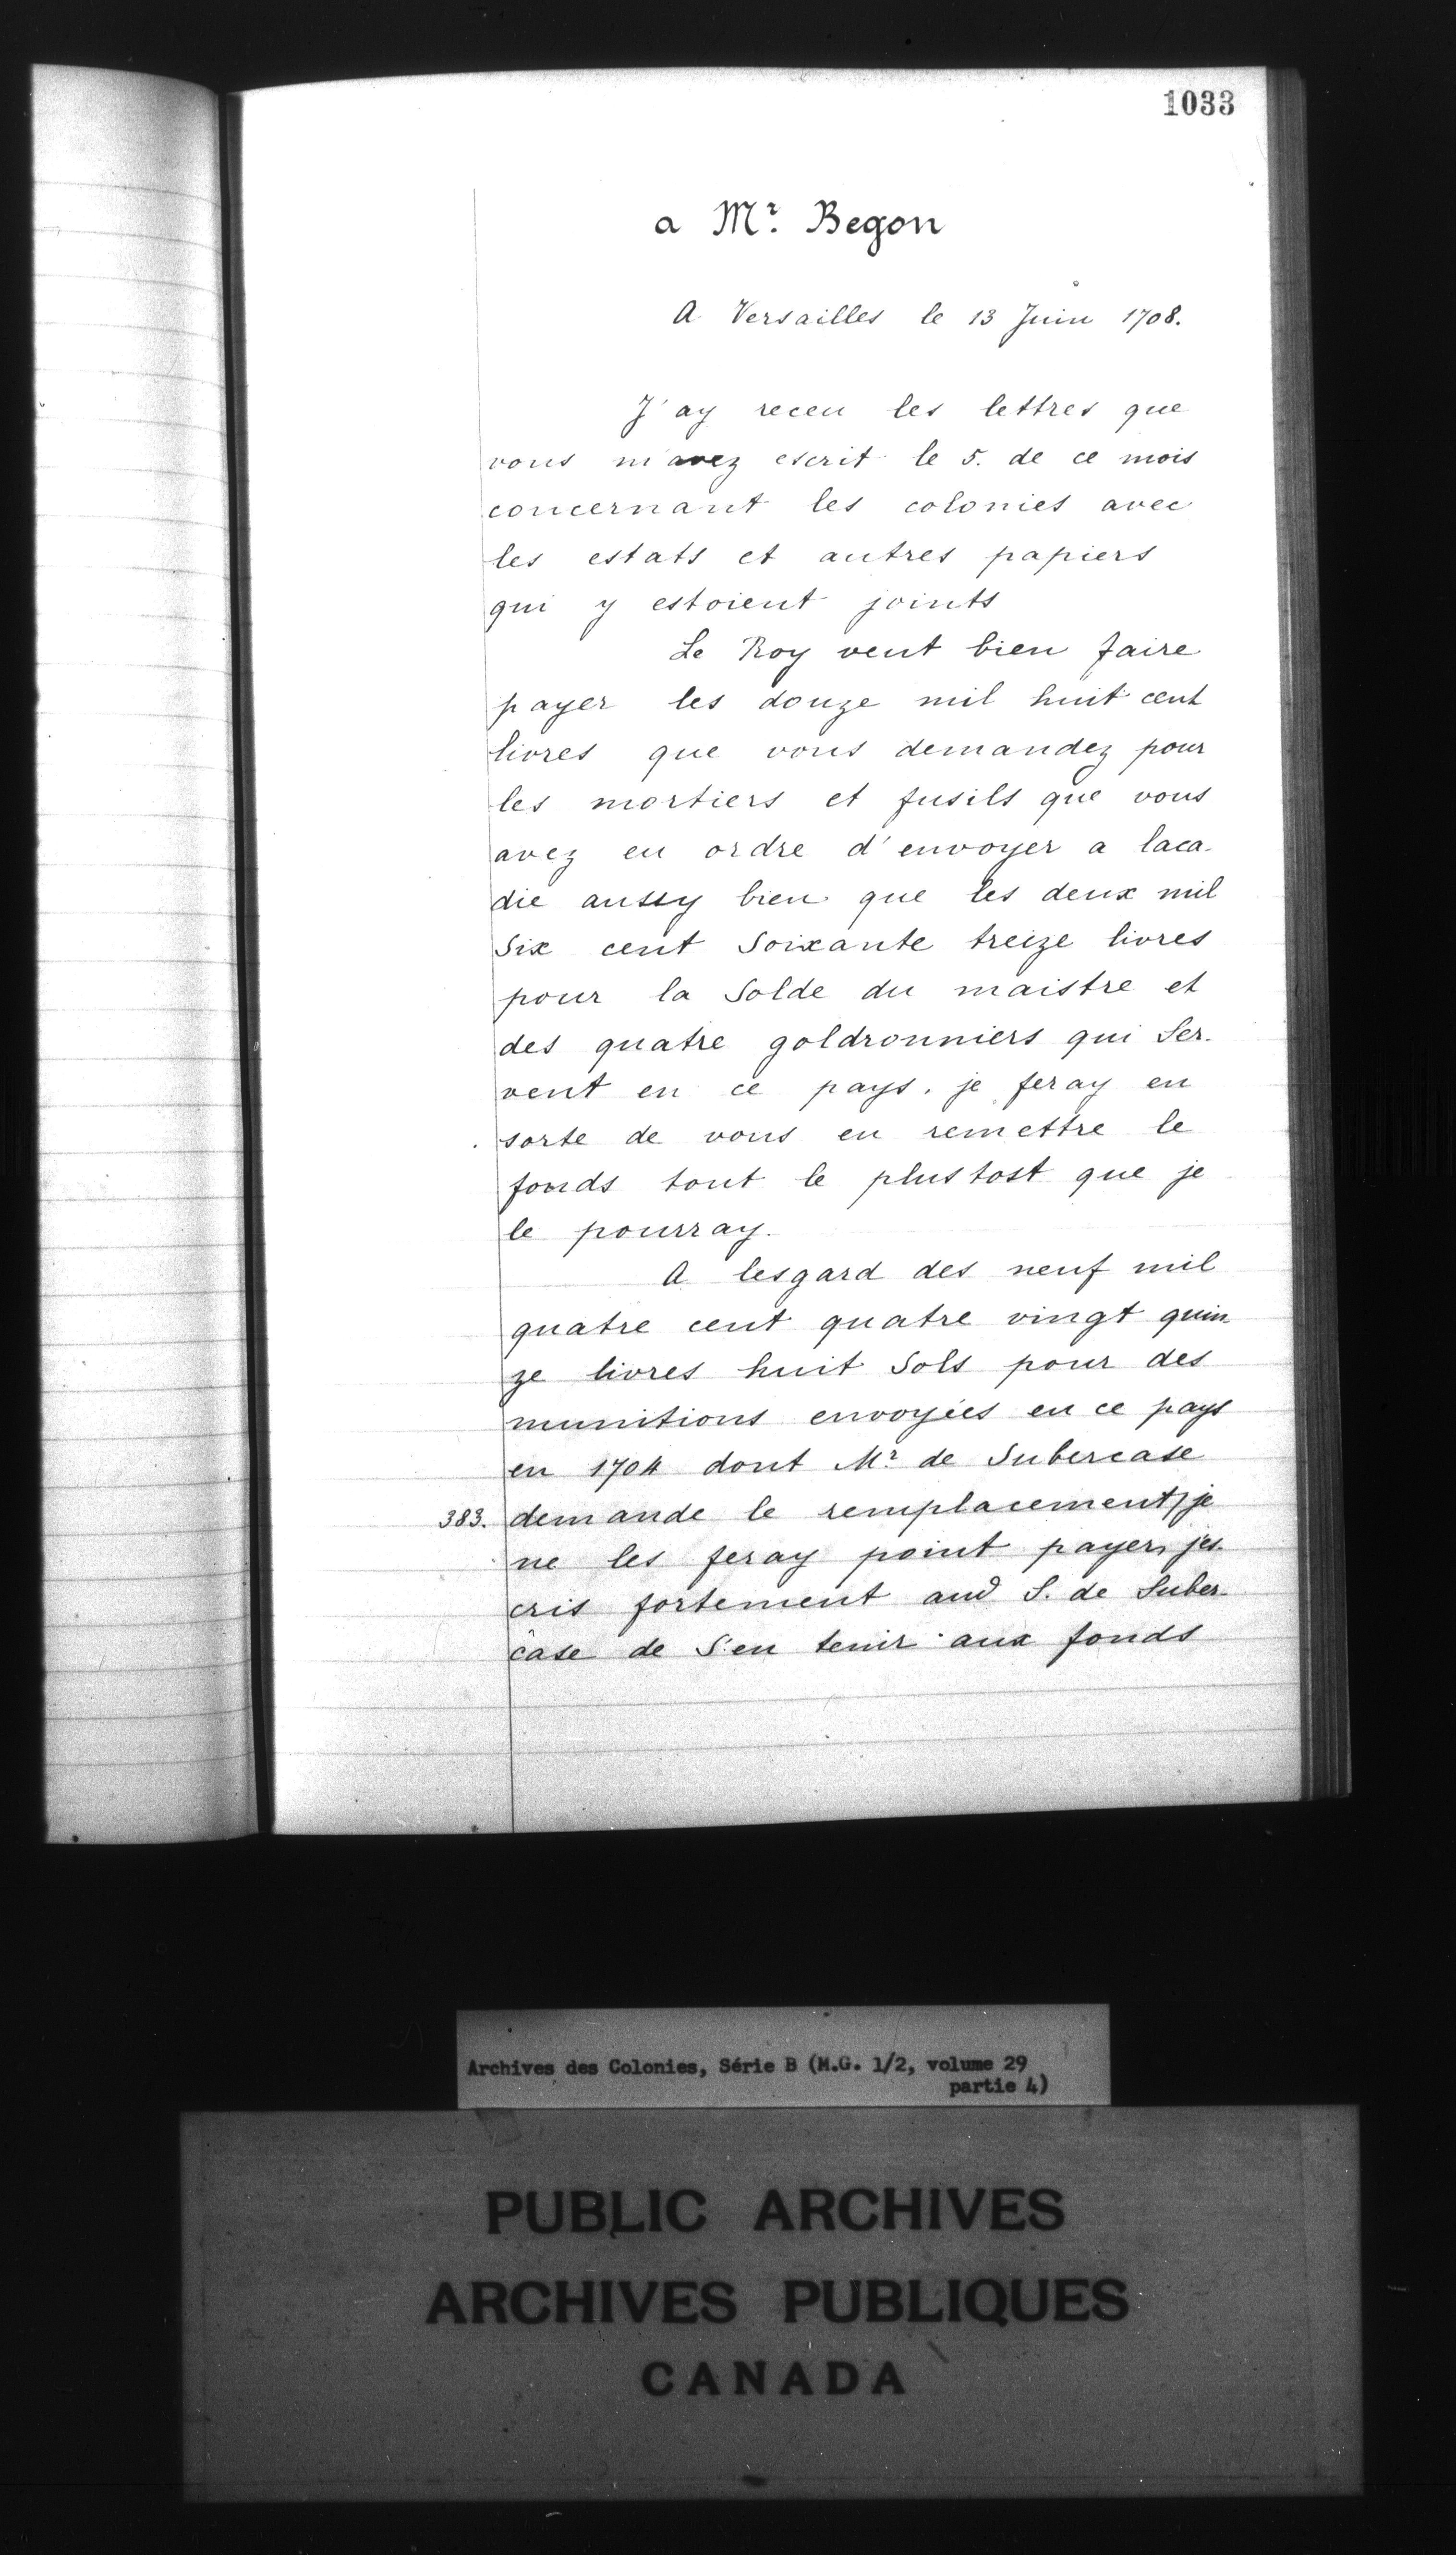 1033
a Mr. Begon
A Versailles le 13 Juin 1708.
J'ay receu les lettres que
vous m'avez escrit le 5. de ce mois
concernant les colonies avec
les estats et autres papiers
qui y estoient joints
Le Roy veut bien faire
payer les douze mil huit cent
livres que vous demandez pour
les mortiers et fusils que vous
avez eu ordre d'envoyer a laca-
die aussy bien que les deux mil
Six cent Soixante treize livres
pour la Solde du maistre et
des quatre goldronniers qui Ser-
vent en ce pays. je feray en
sorte de vous en remettre le
fonds tout le plustost que je
le pourray.
A lesgard des neuf mil
quatre cent quatre vingt quin
ze livres huit Sols pour des
munitions envoyées en ce pays
en 1704 dont Mr de Subercase
383. demande le remplacement, je
ne les feray point payer, jes-
cris fortement aud S. de Suber-
case de S'en tenir aux fonds
Archives des Colonies, Série B (M.G. 1/2, volume 29
partie 4)
PUBLIC ARCHIVES
ARCHIVES PUBLIQUES
CANADA